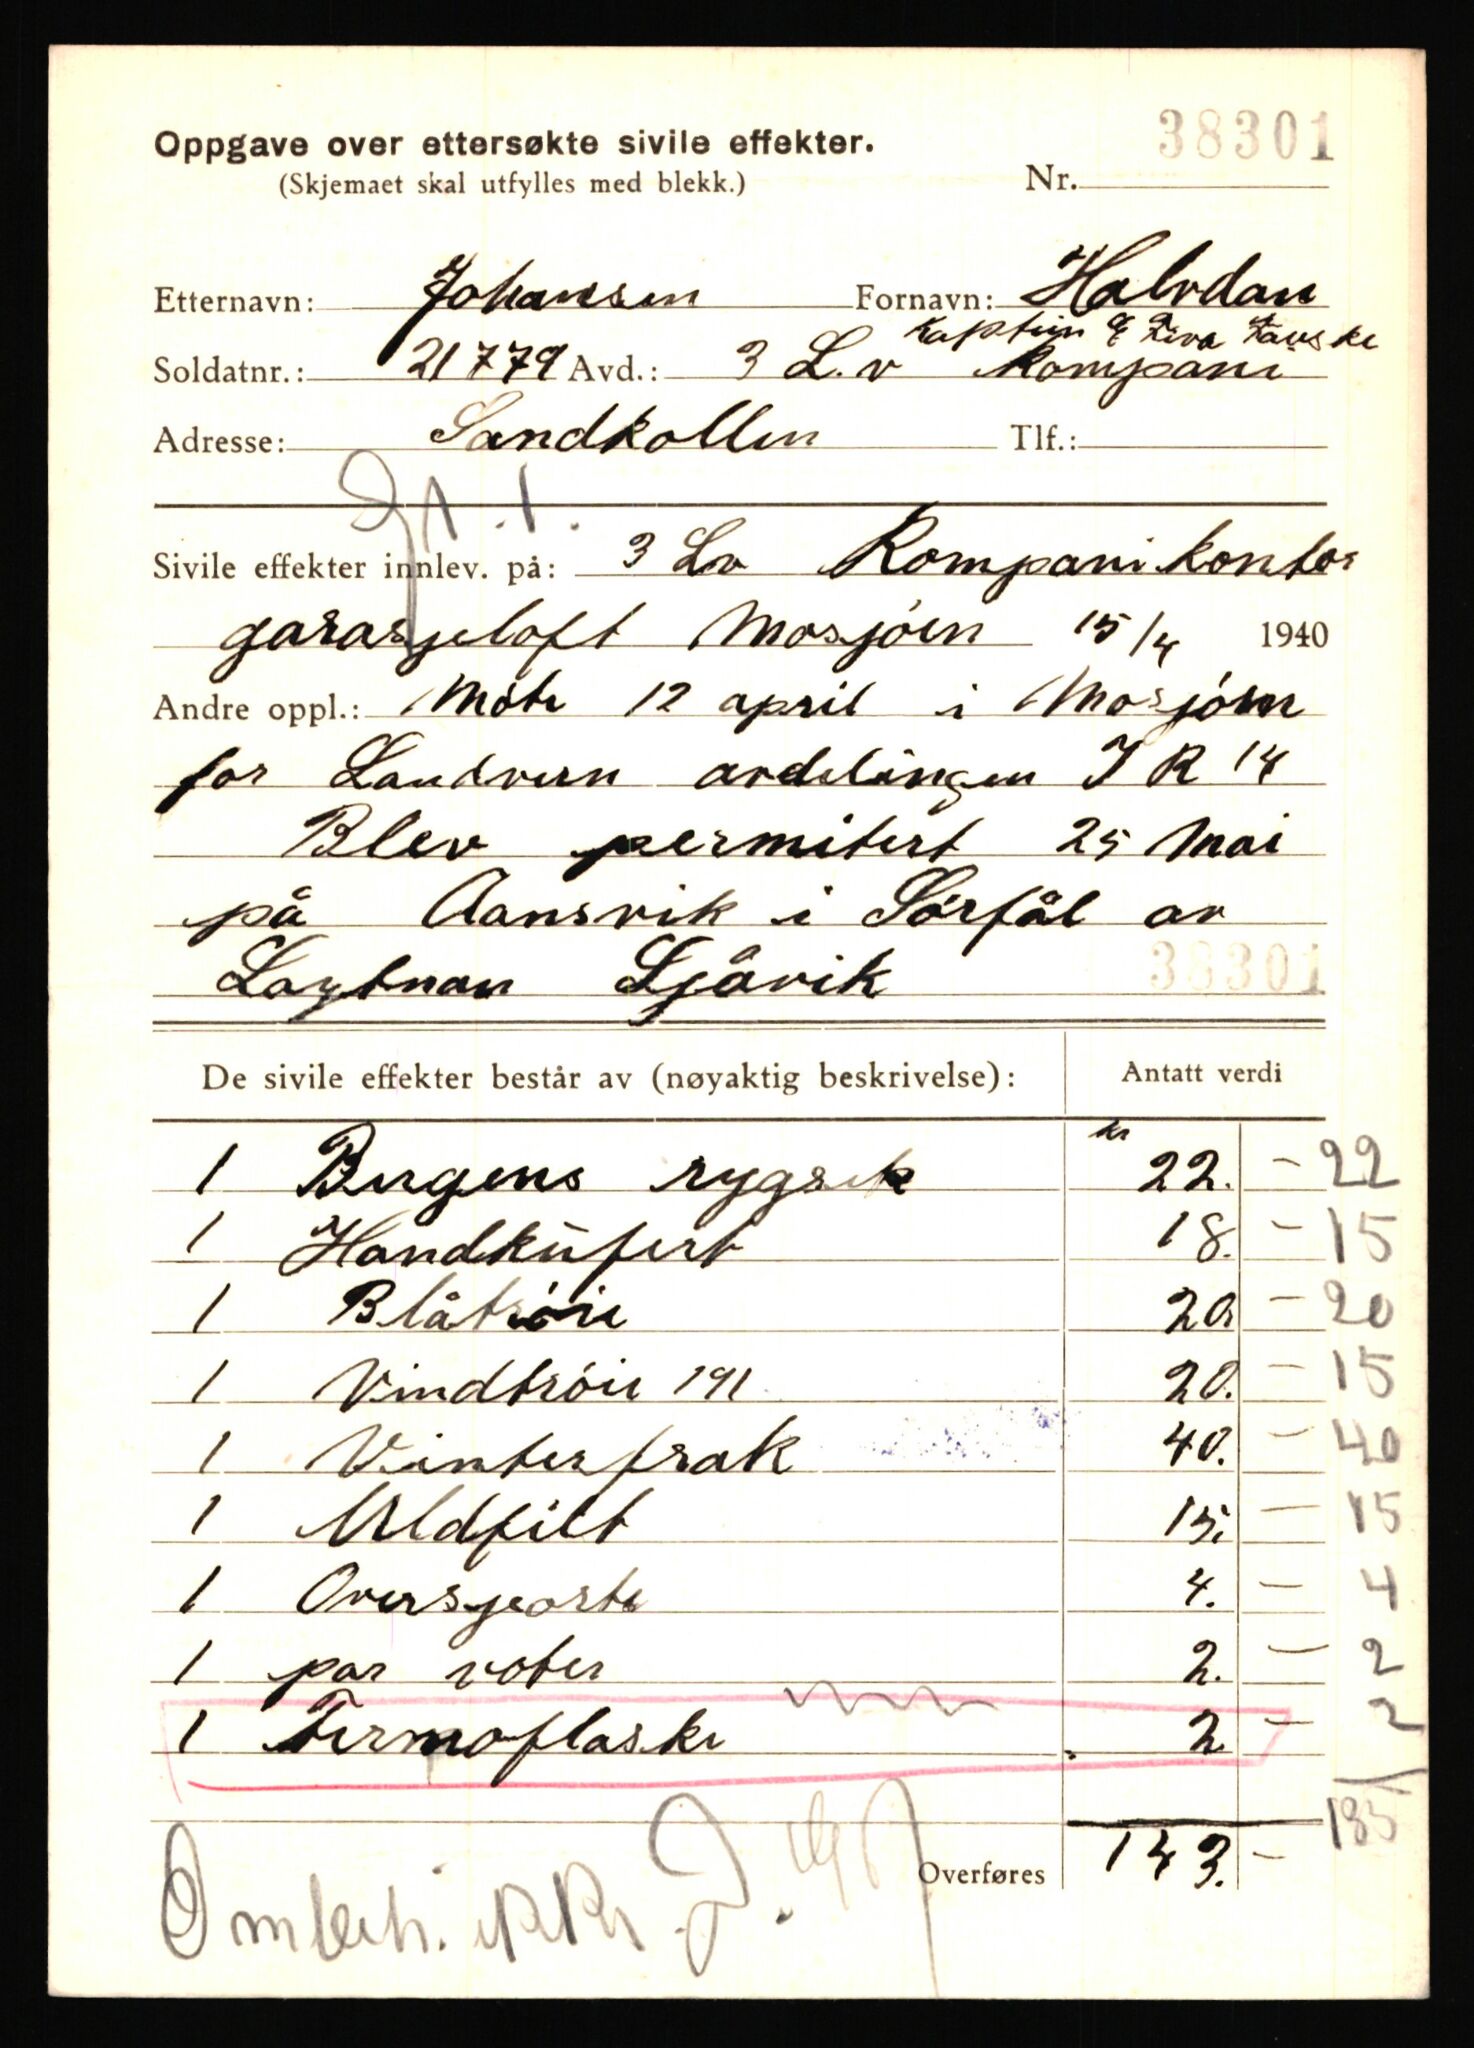 38301
Oppgave over ettersøkte sivile effekter.
(Skjemaet skal utfylles med blekk.)
Nr.
Etternavn: Johansen Fornavn: Halvdan
Kaptein
Soldatnr.: 21779 Avd.: 3 L.v Kompani
Adresse: Sandkollen Tlf.:
Sivile effekter innlev. på: 3 Lv Kompani kontor
garasjeloft Mosjöen 15/4 1940
Andre oppl.: Möte 12 april i Mosjöen
for Landvern avdelingen I R 14
Blev permitert 25 Mai
på Aansvik i Sörfål av
Löytnan Ljåvik
38301
De sivile effekter består av (nøyaktig beskrivelse): Antatt verdi
1 Bergens rygsek kr 22. – 22
1 Handkufert 18. – 15
1 Blåtröie 20 – 20
1 Vindtröie 191 20. – 15
1 Vinterfrak 40. – 40
1 Uldfilt 15. – 15
1 Overskjorte 4. – 4
1 par voter 2. – 2
1 Termoflaske 2 – 2
135
Overføres 143. –